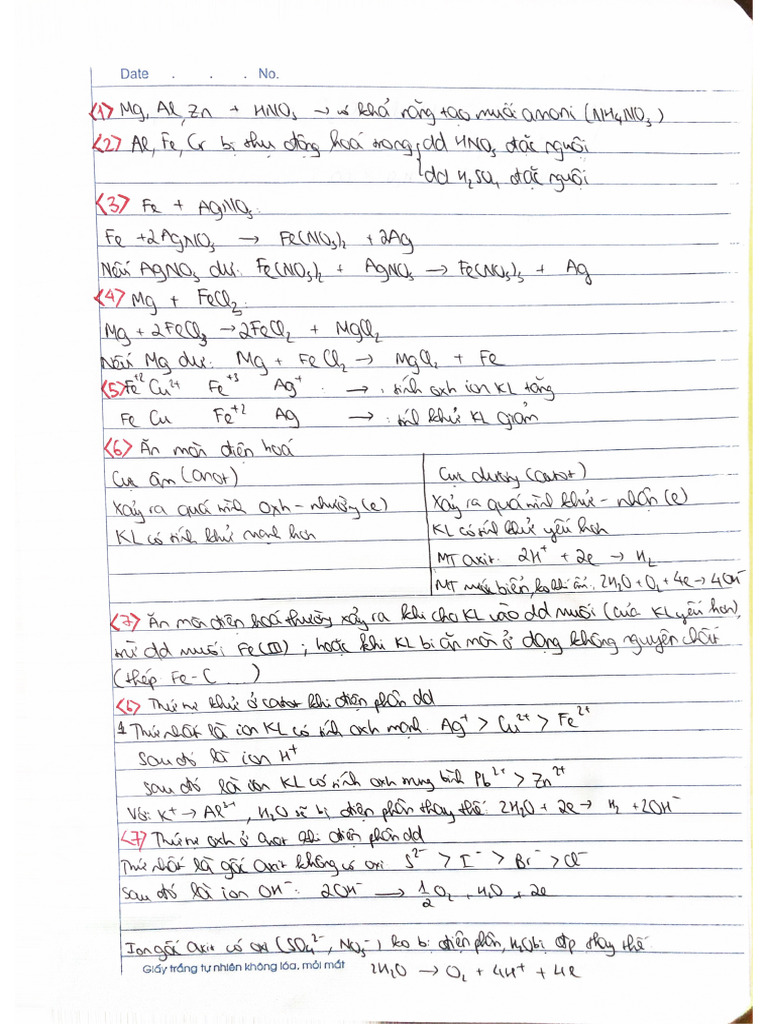 Date . . . No.
<1> Mg, Al, Zn + HNO3 → có khả năng tạo muối amoni (NH4NO3)
<2> Al, Fe, Cr bị thụ động hoá trong { dd HNO3 đặc nguội
dd H2SO4 đặc nguội
<3> Fe + AgNO3:
Fe + 2AgNO3 → Fe(NO3)2 + 2Ag
Nếu AgNO3 dư: Fe(NO3)2 + AgNO3 → Fe(NO3)3 + Ag
<4> Mg + FeCl3:
Mg + 2FeCl3 → 2FeCl2 + MgCl2
Nếu Mg dư: Mg + FeCl2 → MgCl2 + Fe
<5> Fe+2 Cu2+ Fe+3 Ag+ : → : tính oxh ion KL tăng
Fe Cu Fe+2 Ag → : tính khử KL giảm
<6> Ăn mòn điện hoá
Cực âm (anot) | Cực dương (catot)
Xảy ra quá trình oxh - nhường (e) | Xảy ra quá trình khử - nhận (e)
KL có tính khử mạnh hơn | KL có tính khử yếu hơn
MT axit: 2H+ + 2e → H2
MT nước biển, ko khí ẩm: 2H2O + O2 + 4e → 4OH-
<7> Ăn mòn điện hoá thường xảy ra khi cho KL vào dd muối (của KL yếu hơn),
trừ dd muối Fe(III) ; hoặc khi KL bị ăn mòn ở dạng không nguyên chất
(thép Fe-C ....)
<6> Thứ tự khử ở catot khi điện phân dd
1 Thứ nhất là ion KL có tính oxh mạnh Ag+ > Cu2+ > Fe2+
Sau đó là ion H+
Sau đó là ion KL có tính oxh trung bình Pb2+ > Zn2+
Với K+ → Al3+, H2O sẽ bị điện phân thay thế: 2H2O + 2e → H2 + 2OH-
<7> Thứ tự oxh ở anot khi điện phân dd
Thứ nhất là gốc axit không có oxi S2- > I- > Br- > Cl-
Sau đó là ion OH-: 2OH- → 1/2 O2 + H2O + 2e
Ion gốc axit có oxi (SO4 2-, NO3-) ko bị điện phân, H2O bị đp thay thế:
Giấy trắng tự nhiên không lóa, mỏi mắt
2H2O → O2 + 4H+ + 4e